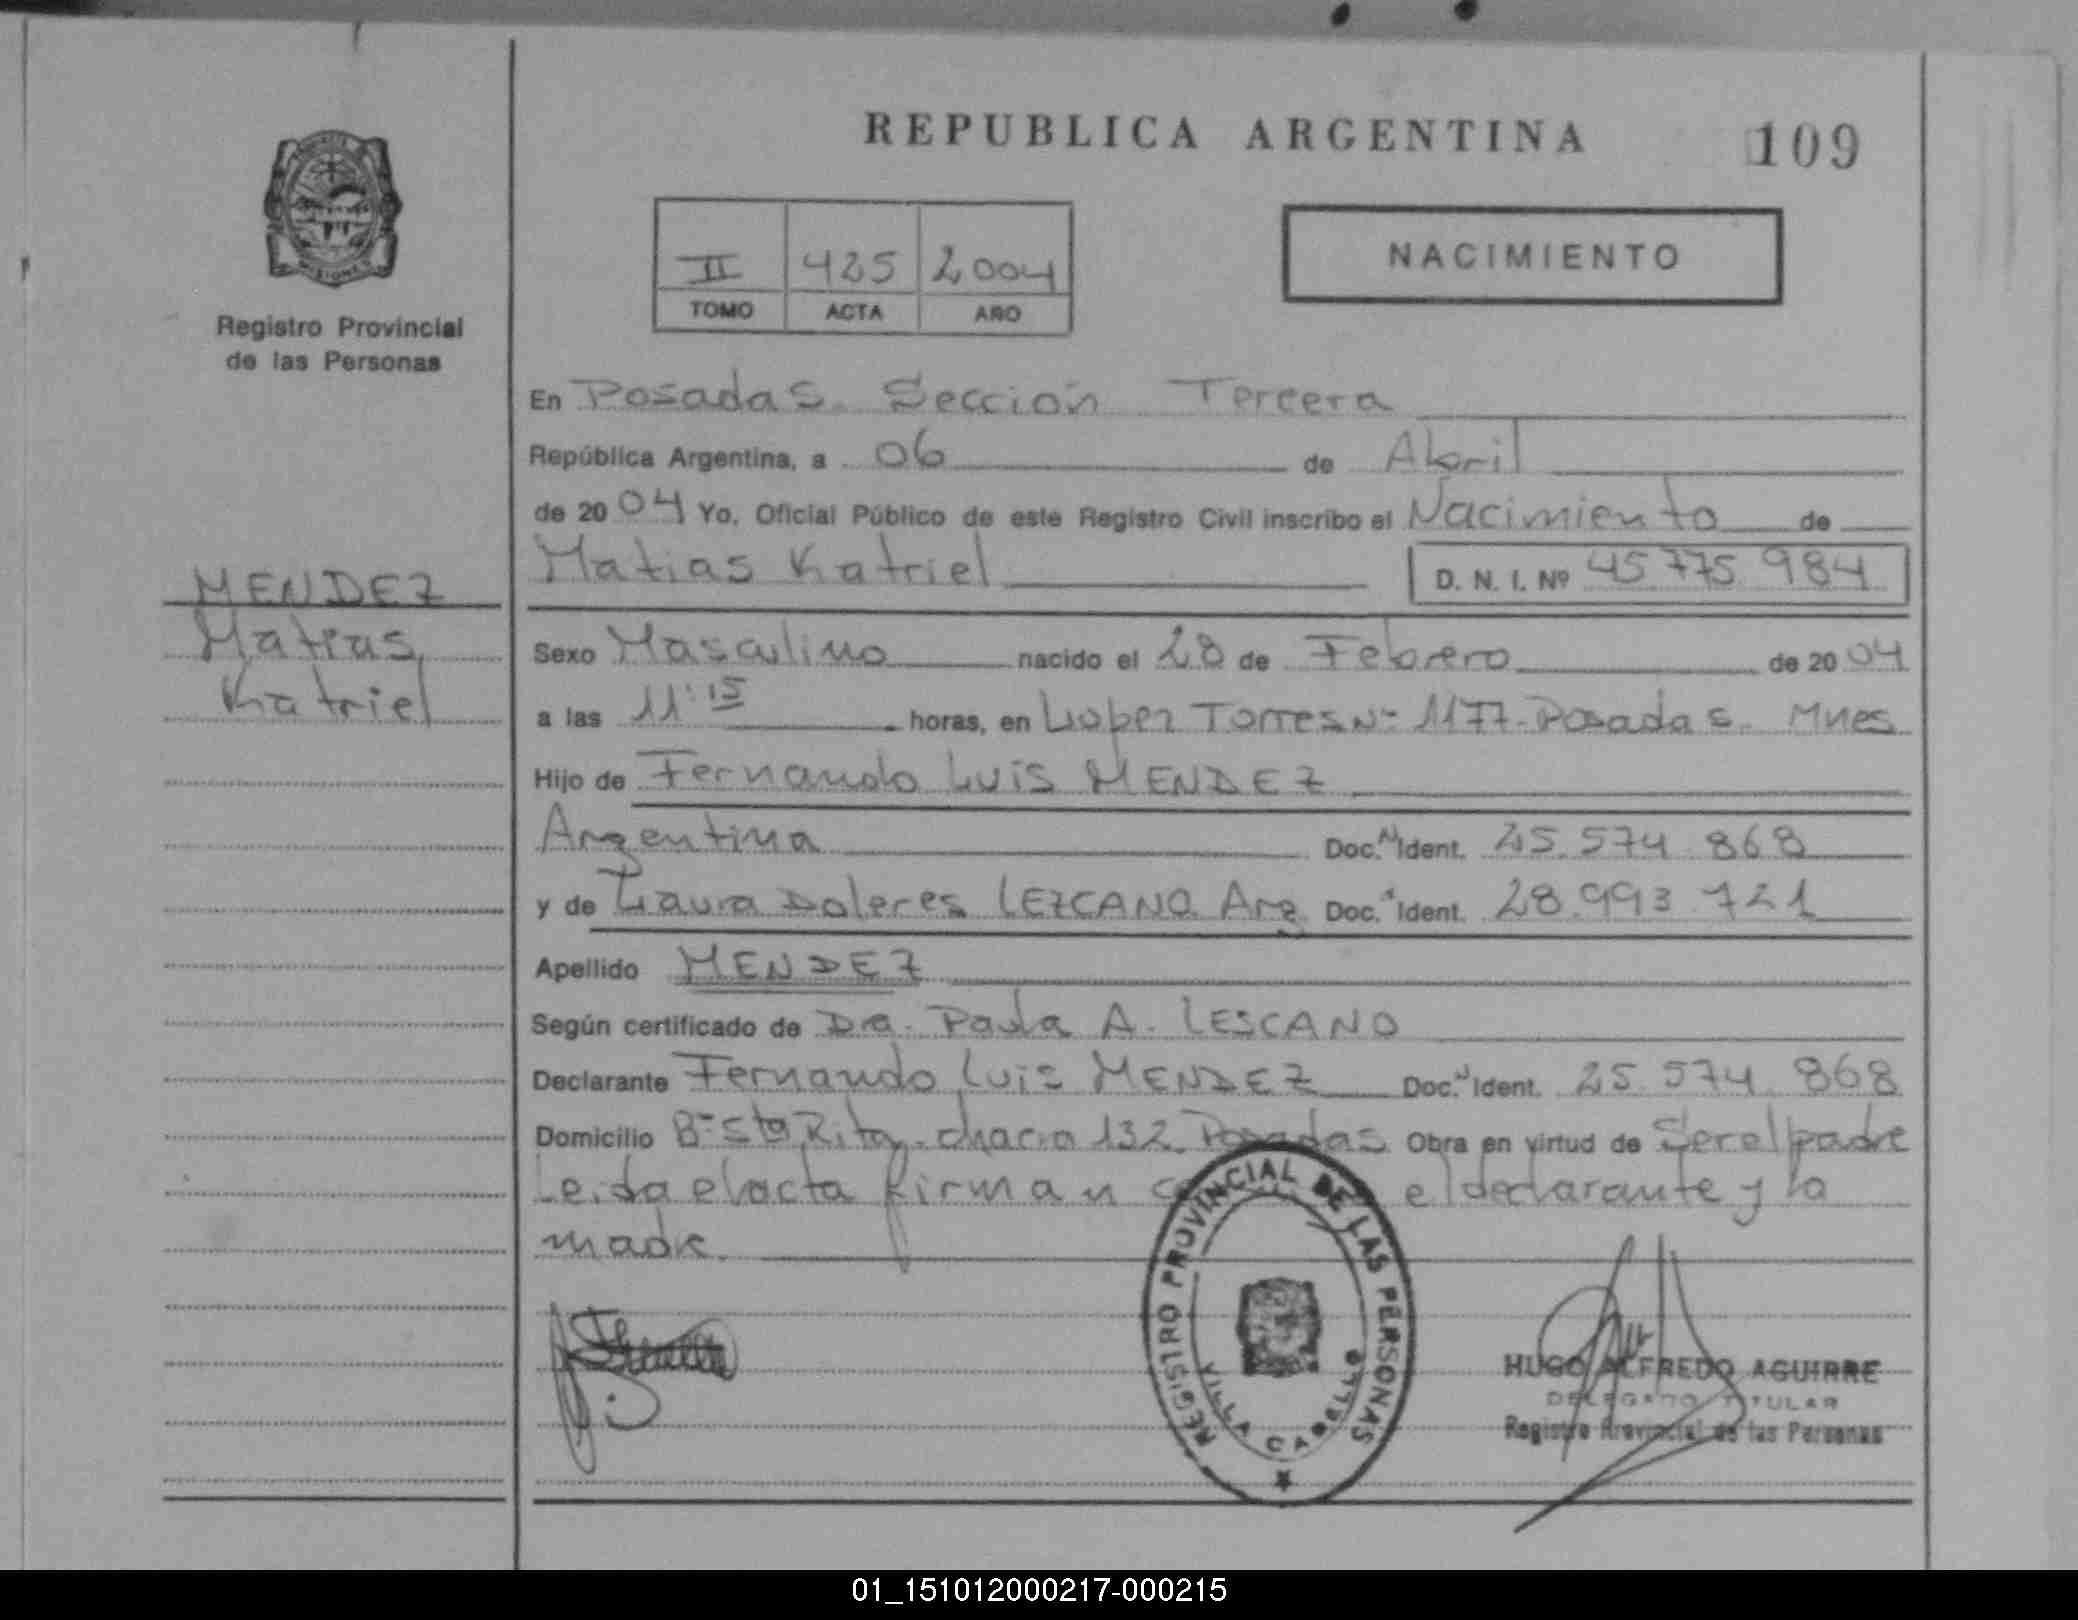 REPUBLICA ARGENTINA 109
MISIONES
Registro Provincial
de las Personas
II 425 2004
TOMO ACTA AÑO
NACIMIENTO
En Posadas. Sección Tercera
República Argentina, a 06 de Abril
de 2004 Yo, Oficial Público de este Registro Civil inscribo el Nacimiento de
Matias Katriel D. N. I. Nº 45 775 984
MENDEZ
Matias
Katriel
Sexo Masculino nacido el 28 de Febrero de 2004
a las 11:15 horas, en Lopez Torres Nº 1177-Posadas. Mnes
Hijo de Fernando Luis MENDEZ
Argentina Doc. N Ident. 25.574.868
y de Laura Dolores LEZCANO. Arg Doc. Ident. 28.993.721
Apellido MENDEZ
Según certificado de Dra. Paula A. LESCANO
Declarante Fernando Luis MENDEZ Doc. N Ident. 25.574.868
Domicilio Bº Sta Rita. chacra 132. Posadas Obra en virtud de Ser el padre
Leida el acta firman el declarante y la
madre.
REGISTRO PROVINCIAL DE LAS PERSONAS
VILLA CABELLO
HUGO ALFREDO AGUIRRE
DELEGADO TITULAR
Registro Provincial de las Personas
01_151012000217-000215